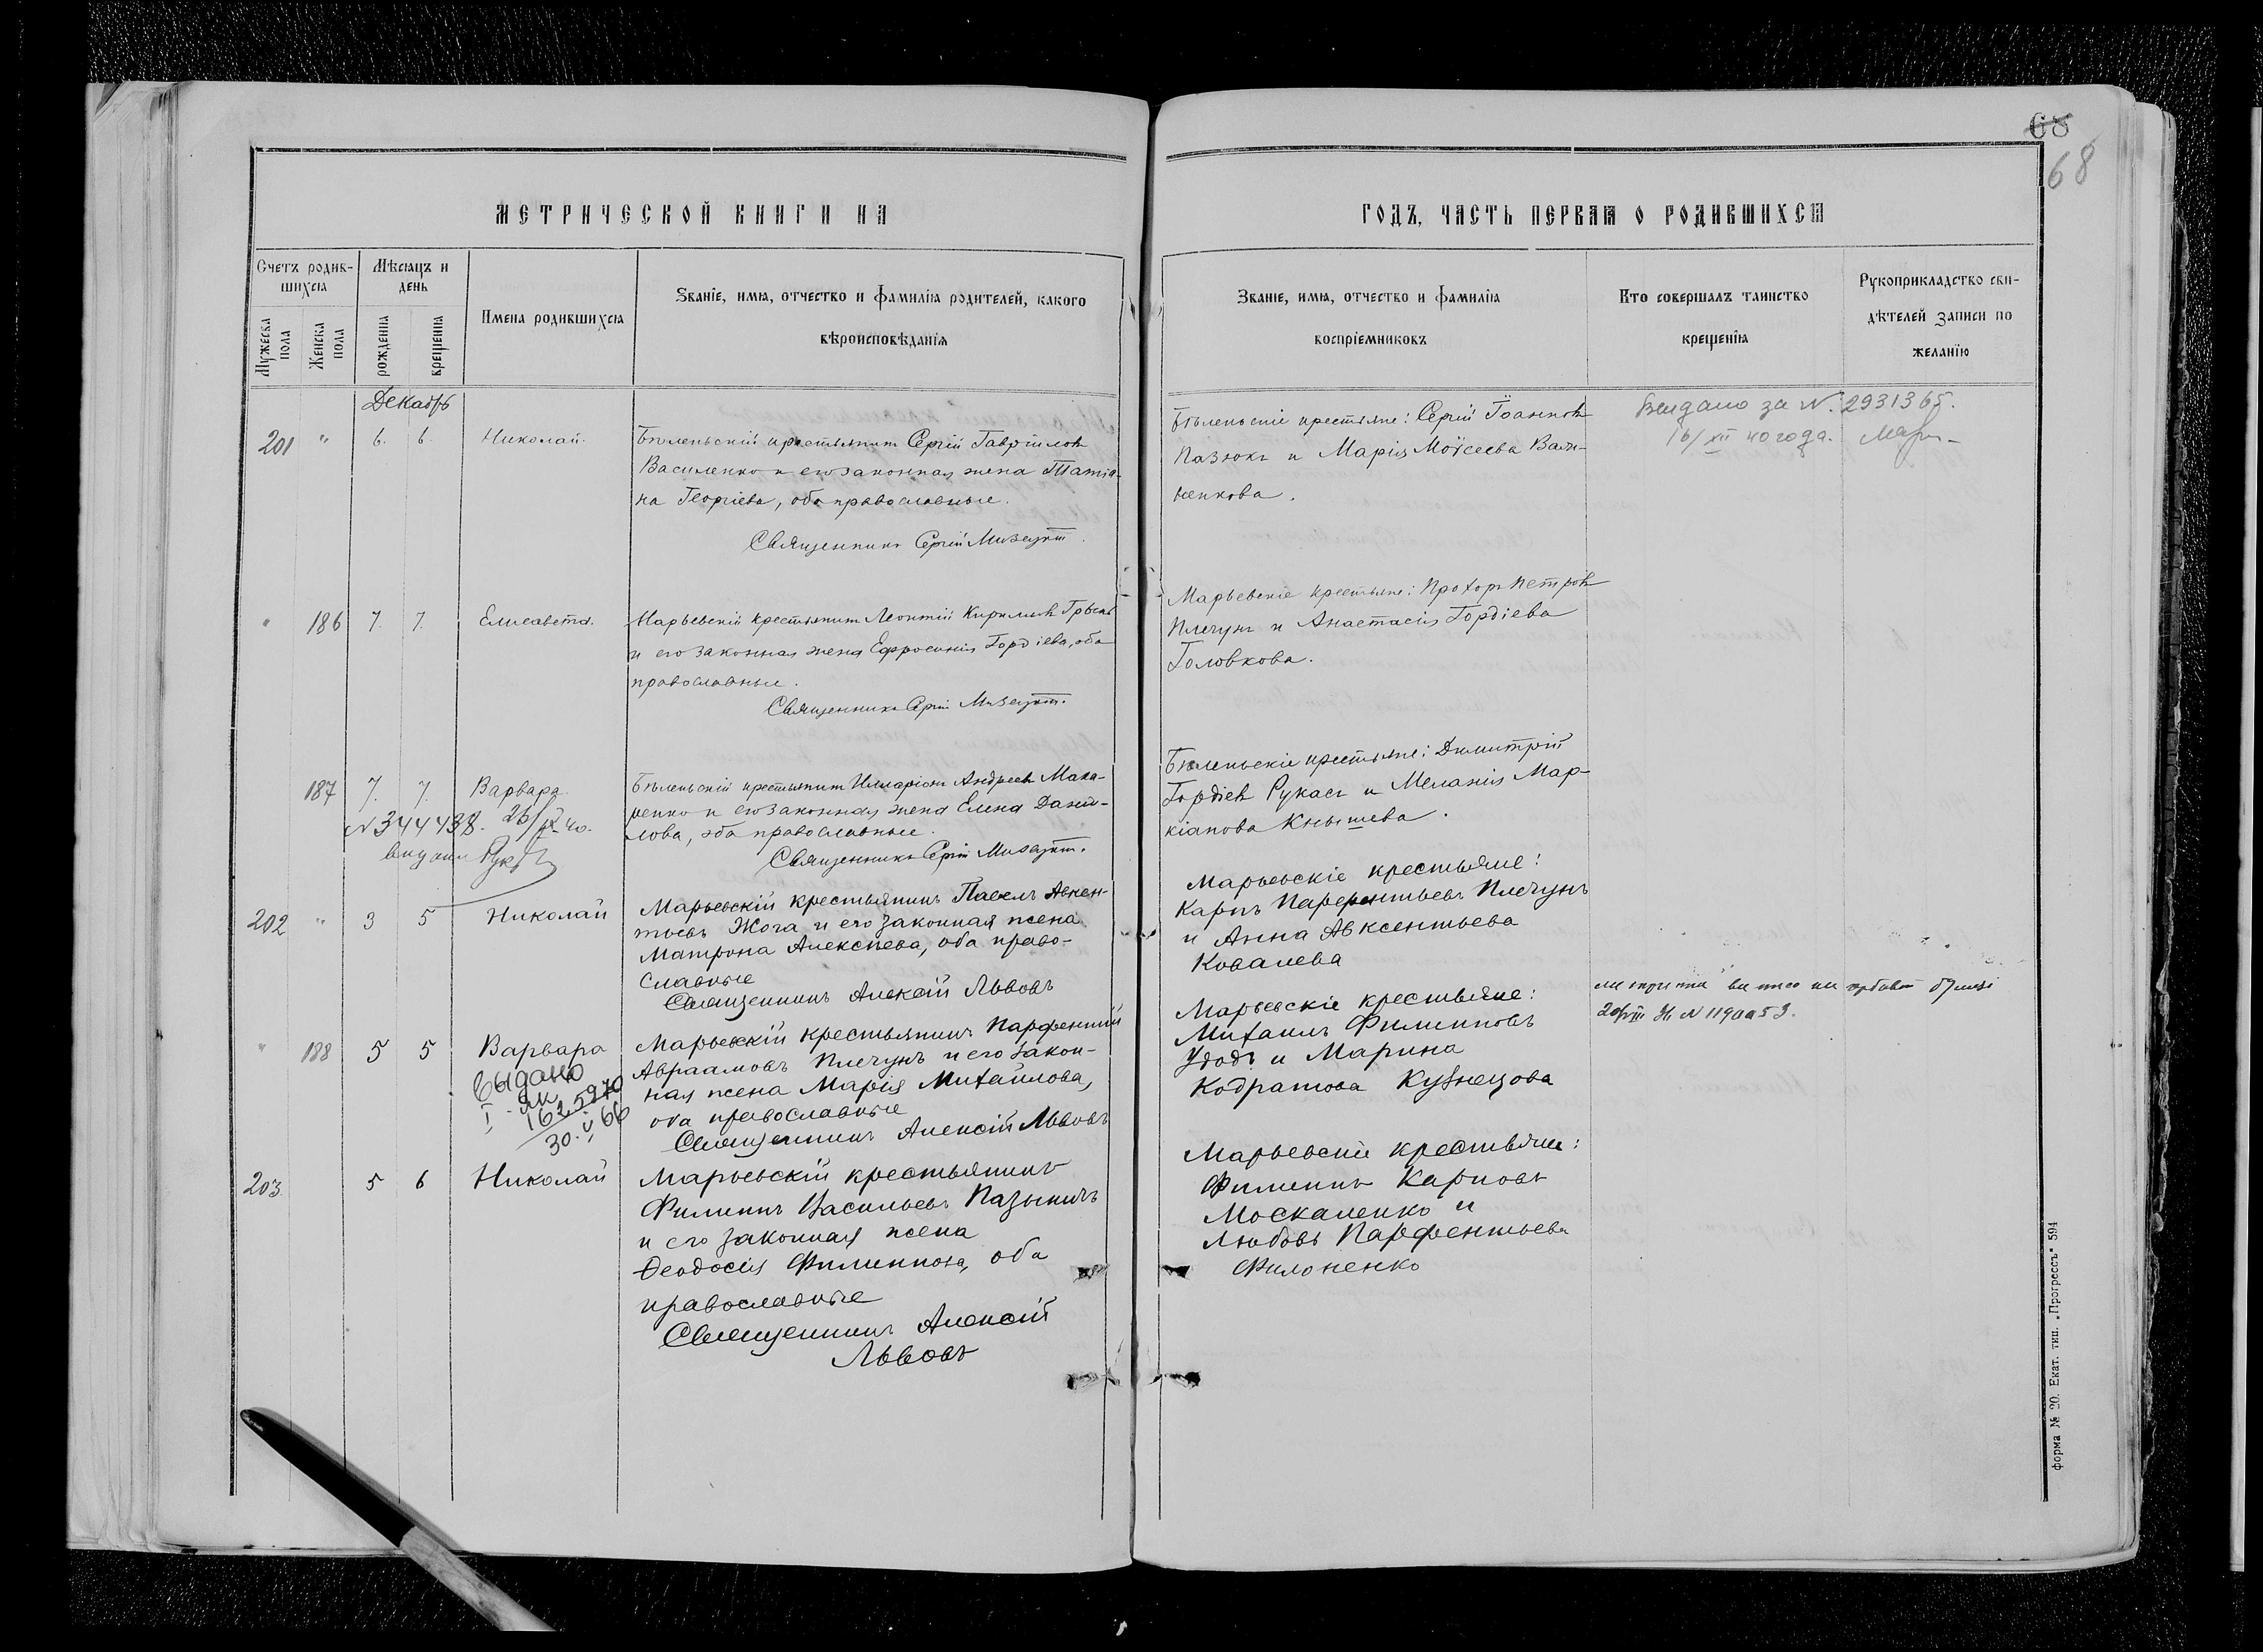 68
68
МЕТРИЧЕСКОЙ КНИГИ НА
ГОДЪ, ЧАСТЬ ПЕРВАЯ О РОДИВШИХСЯ
Счетъ родив-
шихся
Мужеска
пола
Женска
пола
Мѣсяцъ и
день
рожденія
крещенія
Имена родившихся
Званіе, имя, отчество и фамилія родителей, какого
вѣроисповѣданія
Званіе, имя, отчество и фамилія
воспріемниковъ
Кто совершалъ таинство
крещенія
Рукоприкладство сви-
дѣтелей записи по
желанію
Декабрь
201 " 6. 6. Николай.
Бѣленьскій крестьянинъ Сергій Гавріиловъ
Василенко и его законная жена Татіа-
на Георгіева, оба православные.
Священникъ Сергій
Бѣленьскіе крестьяне: Сергій Іоанновъ
Пазюкъ и Марія Моѵсеева Вали-
ненкова.
Видано за N. 2931365.
16/XII 40 года.
" 186 7. 7. Елисавета.
Марьевскій крестьянинъ Леонтій Кириловъ
и его законная жена Ефросинія Гордіева, оба
православные.
Священникъ Сергій
Марьевскіе крестьяне: Прохоръ Петровъ
Плечунъ и Анастасія Гордіева
Головкова.
187 7. 7. Варвара.
N 344438. 26/IX 40.
видани
Бѣленьскій крестьянинъ Илларіонъ Андреевъ Мака-
ренко и его законная жена Елена Дані-
лова, оба православные.
Священникъ Сергій
Бѣленьскіе крестьяне: Димитрій
Гордіевъ Рукасъ и Меланія Мар-
кіанова Кнышева.
202 " 3 5 Николай
Марьевскій крестьянинъ Павелъ Авксен-
тьевъ Жога и его законная жена
Матрона Алексѣева, оба право-
славные
Священникъ Алексій Львовъ
Марьевскіе крестьяне:
Карпъ Парфентьевъ Плечунъ
и Анна Авксентьева
Ковалева
" 188 5 5 Варвара
Выдано
I - ЯК
1625970
30.V 66
Марьевскій крестьянинъ Парфентій
Авраамовъ Плечунъ и его закон-
ная жена Марія Михайлова,
оба православные
Священникъ Алексій Львовъ
Марьевскіе крестьяне:
Михаилъ Филипповъ
Удодъ и Марина
Кодратова Кузнецова
203. 5 6 Николай
Марьевскій крестьянинъ
Филиппъ Васильевъ
и его законная жена
Ѳеодосія Филиппова, оба
православные
Священникъ Алексій
Львовъ
Марьевскіе крестьяне:
Филиппъ Карповъ
Москаленко и
Любовь Парфентьева
Филоненко
форма № 20. Екат. тип. „Прогрессъ" 594